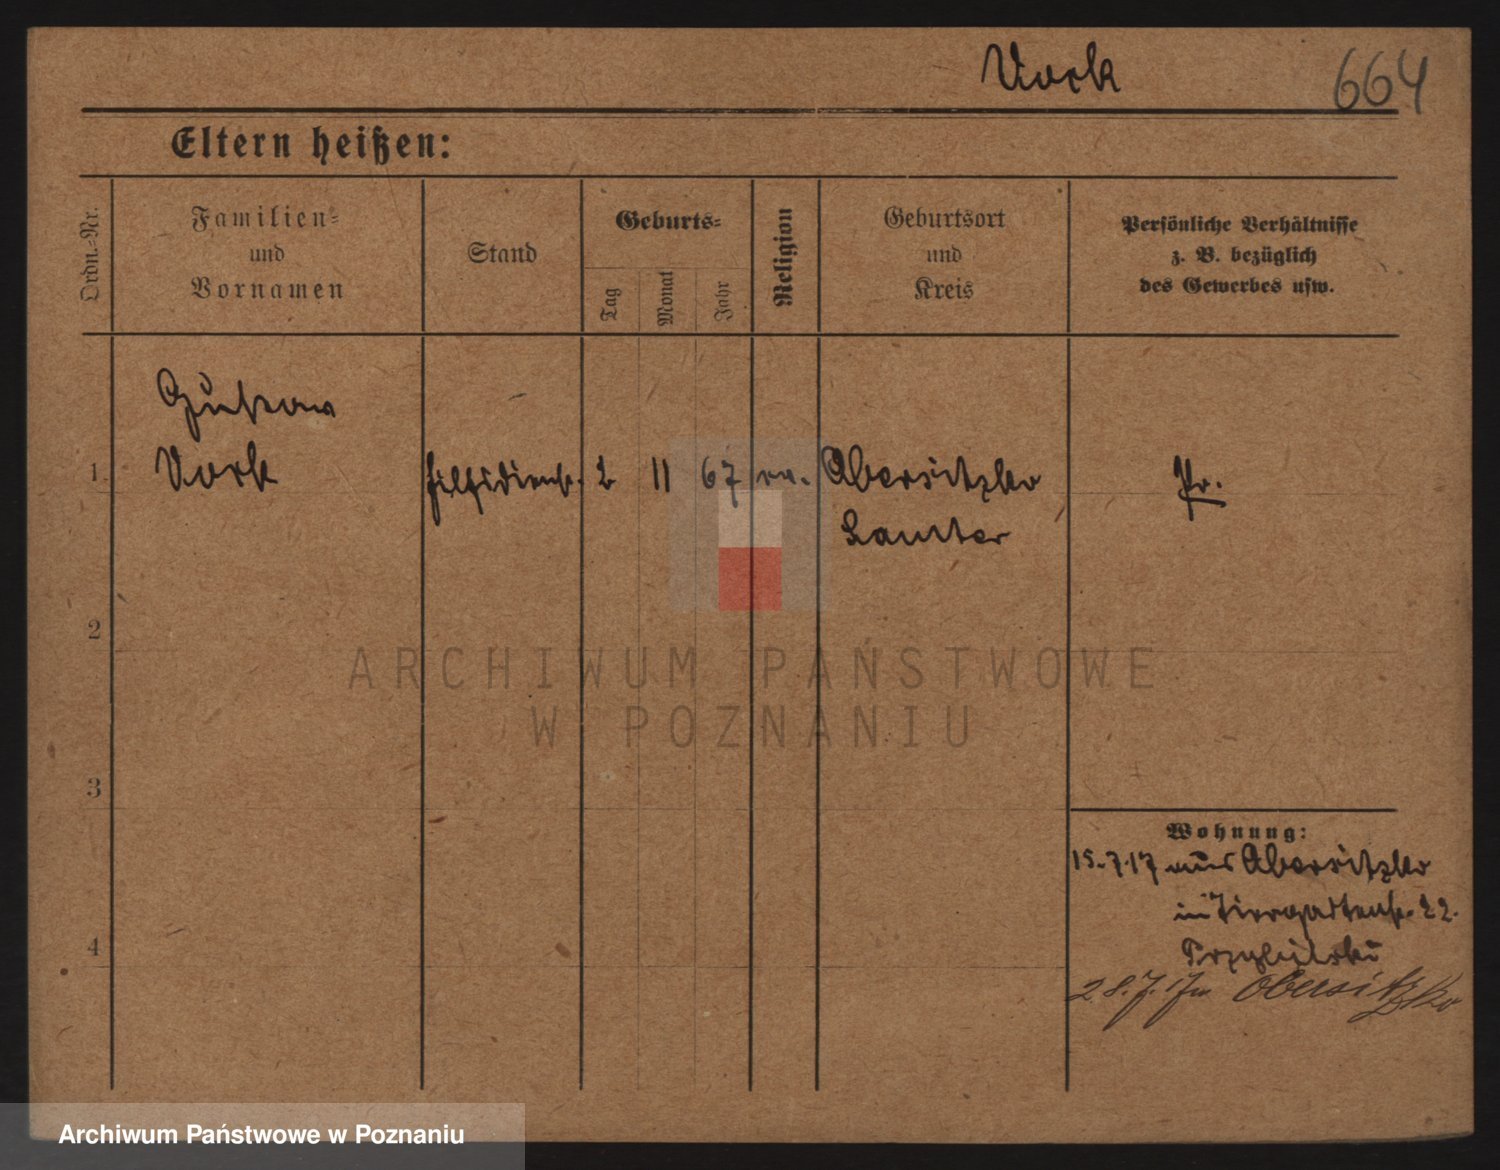 Vork 664
Eltern heißen:
Ordn.-Nr.
Familien-
und
Vornamen
Stand
Geburts-
Tag
Monat
Jahr
Religion
Geburtsort
und
Kreis
Persönliche Verhältnisse
z. B. bezüglich
des Gewerbes usw.
Gustav
1 Vork Hilfsdienst. 2 11 67 ev. Obersitzko
Samter
Pr.
2
3
4
Wohnung:
15.7.17 aus Obersitzko
in Tiergartenstr. 22.
28.7.17 n Obersitzko
ARCHIWUM PAŃSTWOWE
W POZNANIU
Archiwum Państwowe w Poznaniu